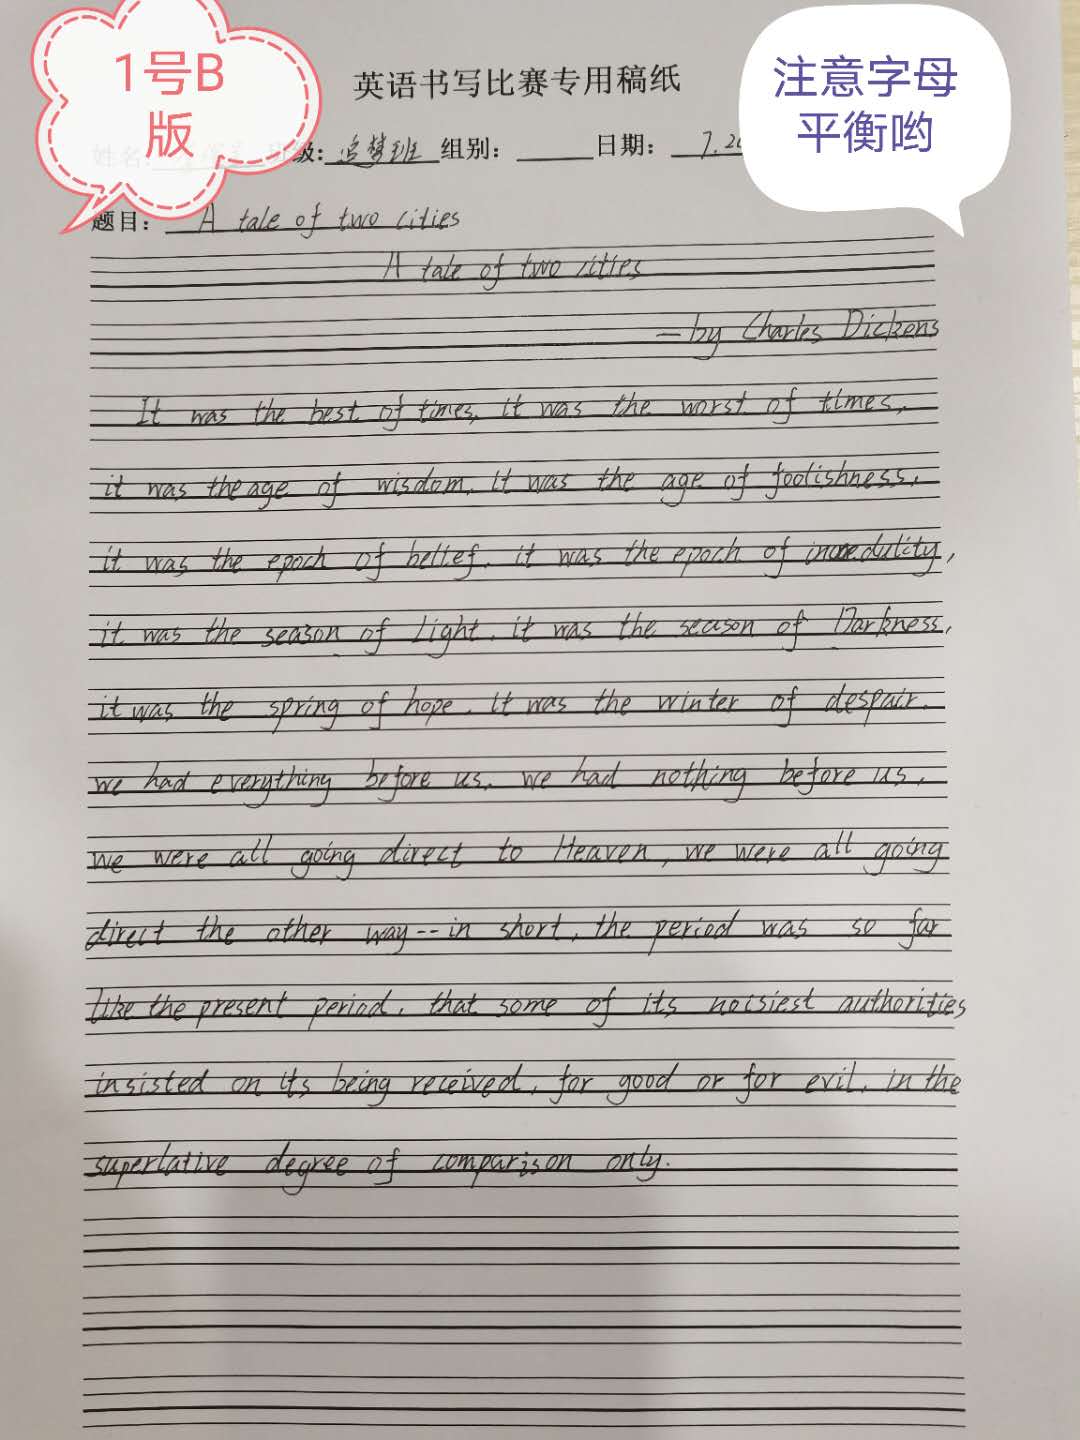 1号B
版
注意字母
平衡哟
英语书写比赛专用稿纸
姓名: 班级: 追梦班 组别: 日期: 7.20
题目: A tale of two cities
A tale of two cities
— by Charles Dickens
It was the best of times, it was the worst of times,
it was the age of wisdom, it was the age of foolishness,
it was the epoch of belief, it was the epoch of incredulity,
it was the season of Light, it was the season of Darkness,
it was the spring of hope, it was the winter of despair,
we had everything before us, we had nothing before us,
we were all going direct to Heaven, we were all going
direct the other way--in short, the period was so far
like the present period, that some of its noisiest authorities
insisted on its being received, for good or for evil, in the
superlative degree of comparison only.